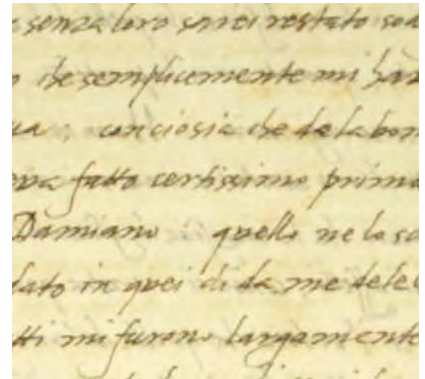 senza loro sarei restato sod
che semplicemente mi han
ua, conciosia che de la bon
eva fatto certissimo prima
Damiano quello ne lo sc
dato in quei di da me dele
tti mi furono largamente